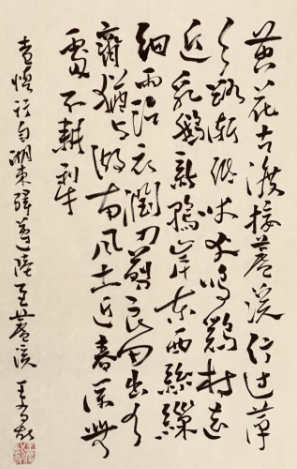 黄花古渡接蘆溪行过萍
乡路渐低吠犬鸣鷄村远
近乳鵝新鸭岸东西絲繅
细雨沾衣润刀剪良田出水
齊猶与湖南风土近春深无
處不耕犁
查慎行自湖東驛遵陸至蘆溪